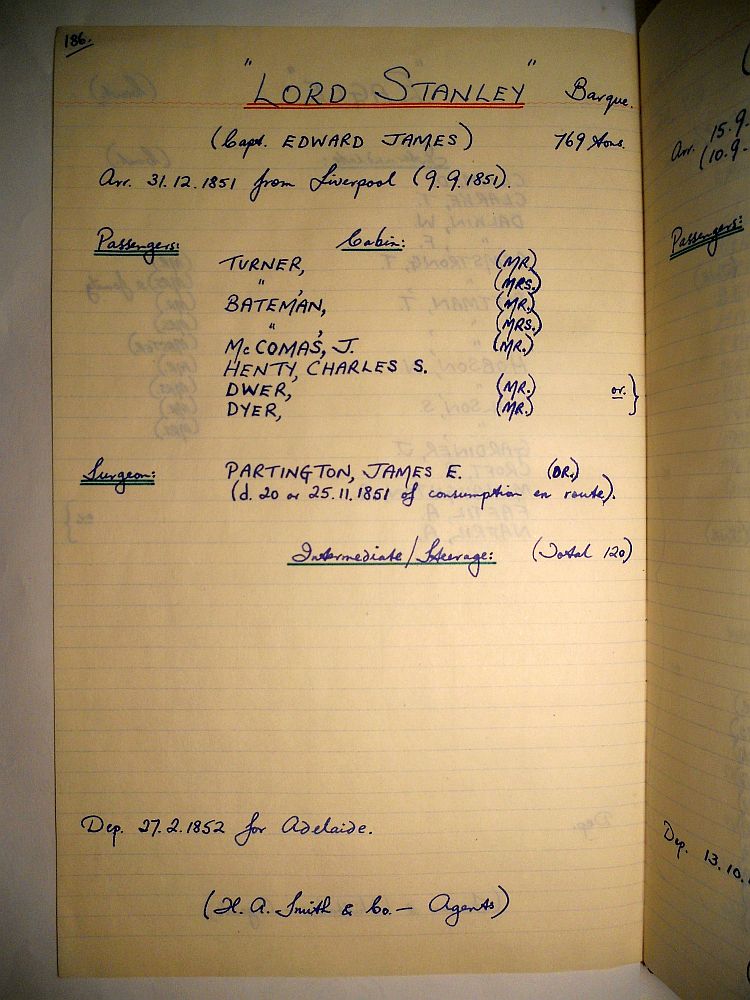 186.
"LORD STANLEY" Barque.
(Capt. EDWARD JAMES) 769 tons.
Arr. 31.12.1851 from Liverpool (9.9.1851).
Passengers: Cabin:
TURNER, (MR.)
" , (MRS.)
BATEMAN, (MR.)
" , (MRS.)
McCOMAS, J. (MR.)
HENTY, CHARLES S.
DWER, (MR.) or. }
DYER, (MR.)
Surgeon: PARTINGTON, JAMES E. (DR.)
(d. 20 or 25.11.1851 of consumption en route).
Intermediate/Steerage: (Total 120)
Dep. 27.2.1852 for Adelaide.
(H. A. Smith & Co. — Agents)
Arr. 15.9.
(10.9-
Passengers:
Dep. 13.10.